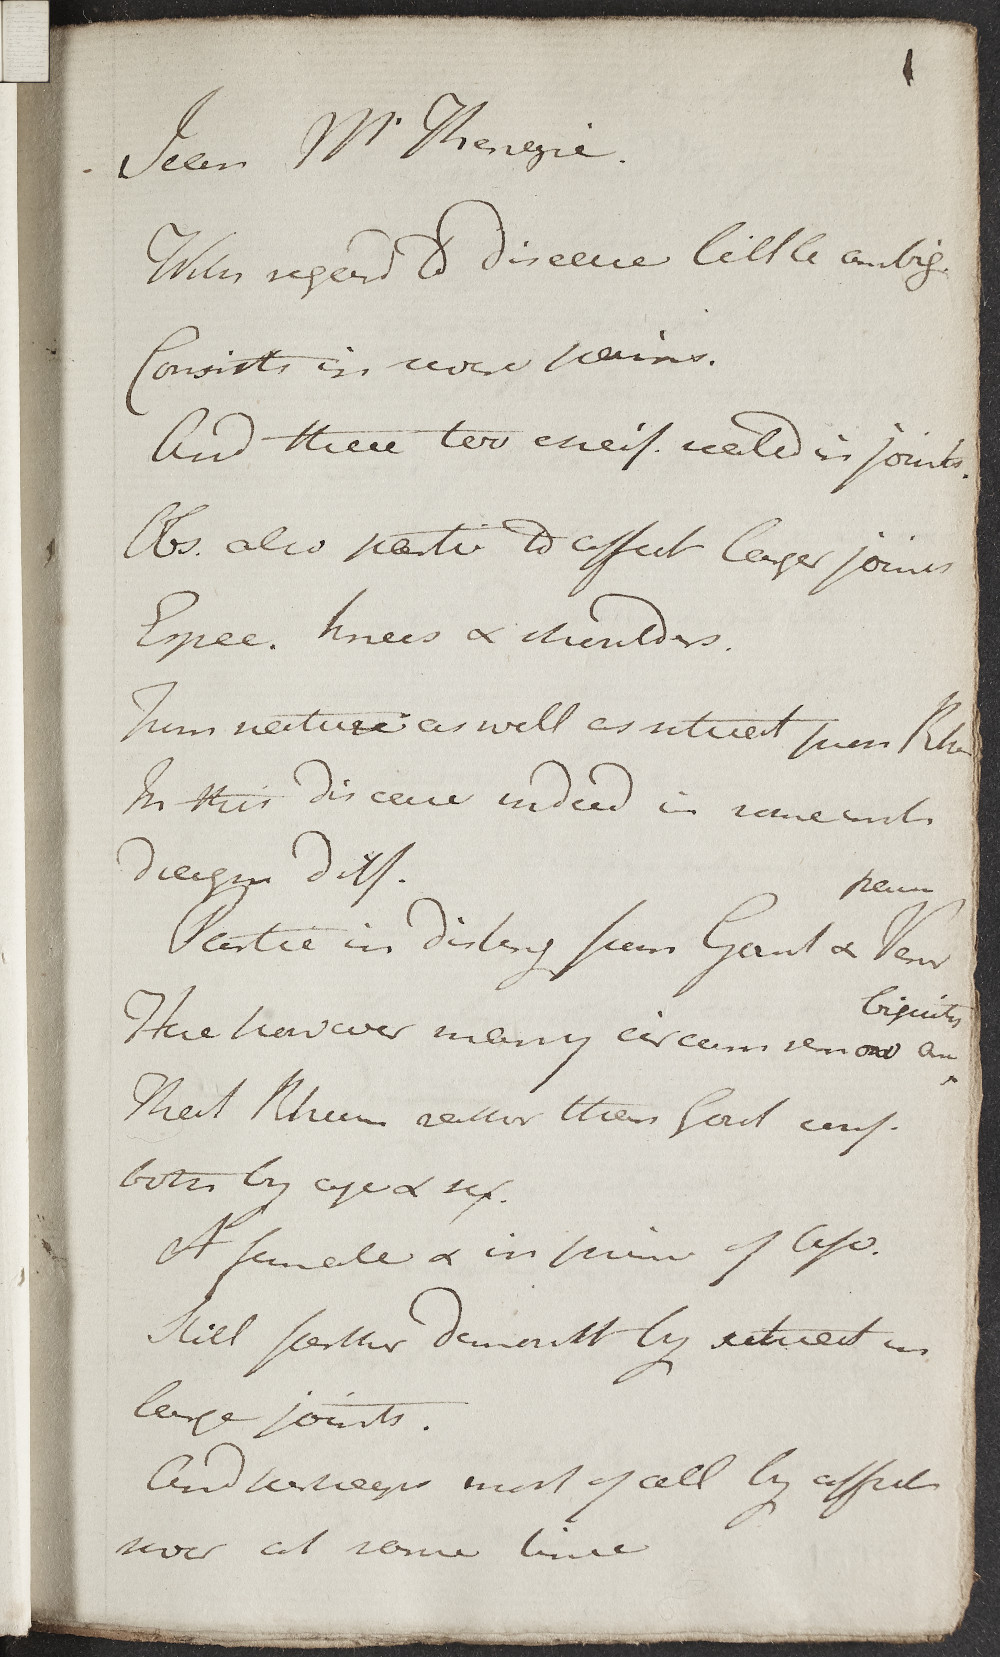 1
Jean McKenzie.
With regard to disease little ambig.
Consists in severe pains.
And these too chiefl. seated in joints.
Obs. also partic to affect larger joints
Espec. knees & shoulders.
From nature as well as situat from Rheu
In this disease indeed in some insts
diagn diff.
Partic in disting from Gout & Vener
pains
Here however many circum remove am
biguity
That Rheum rather than Gout conf.
both by age & sex.
A female & in prime of life.
Still farther demonst by situat in
large joints.
And perhaps most of all by affect
sever at same time